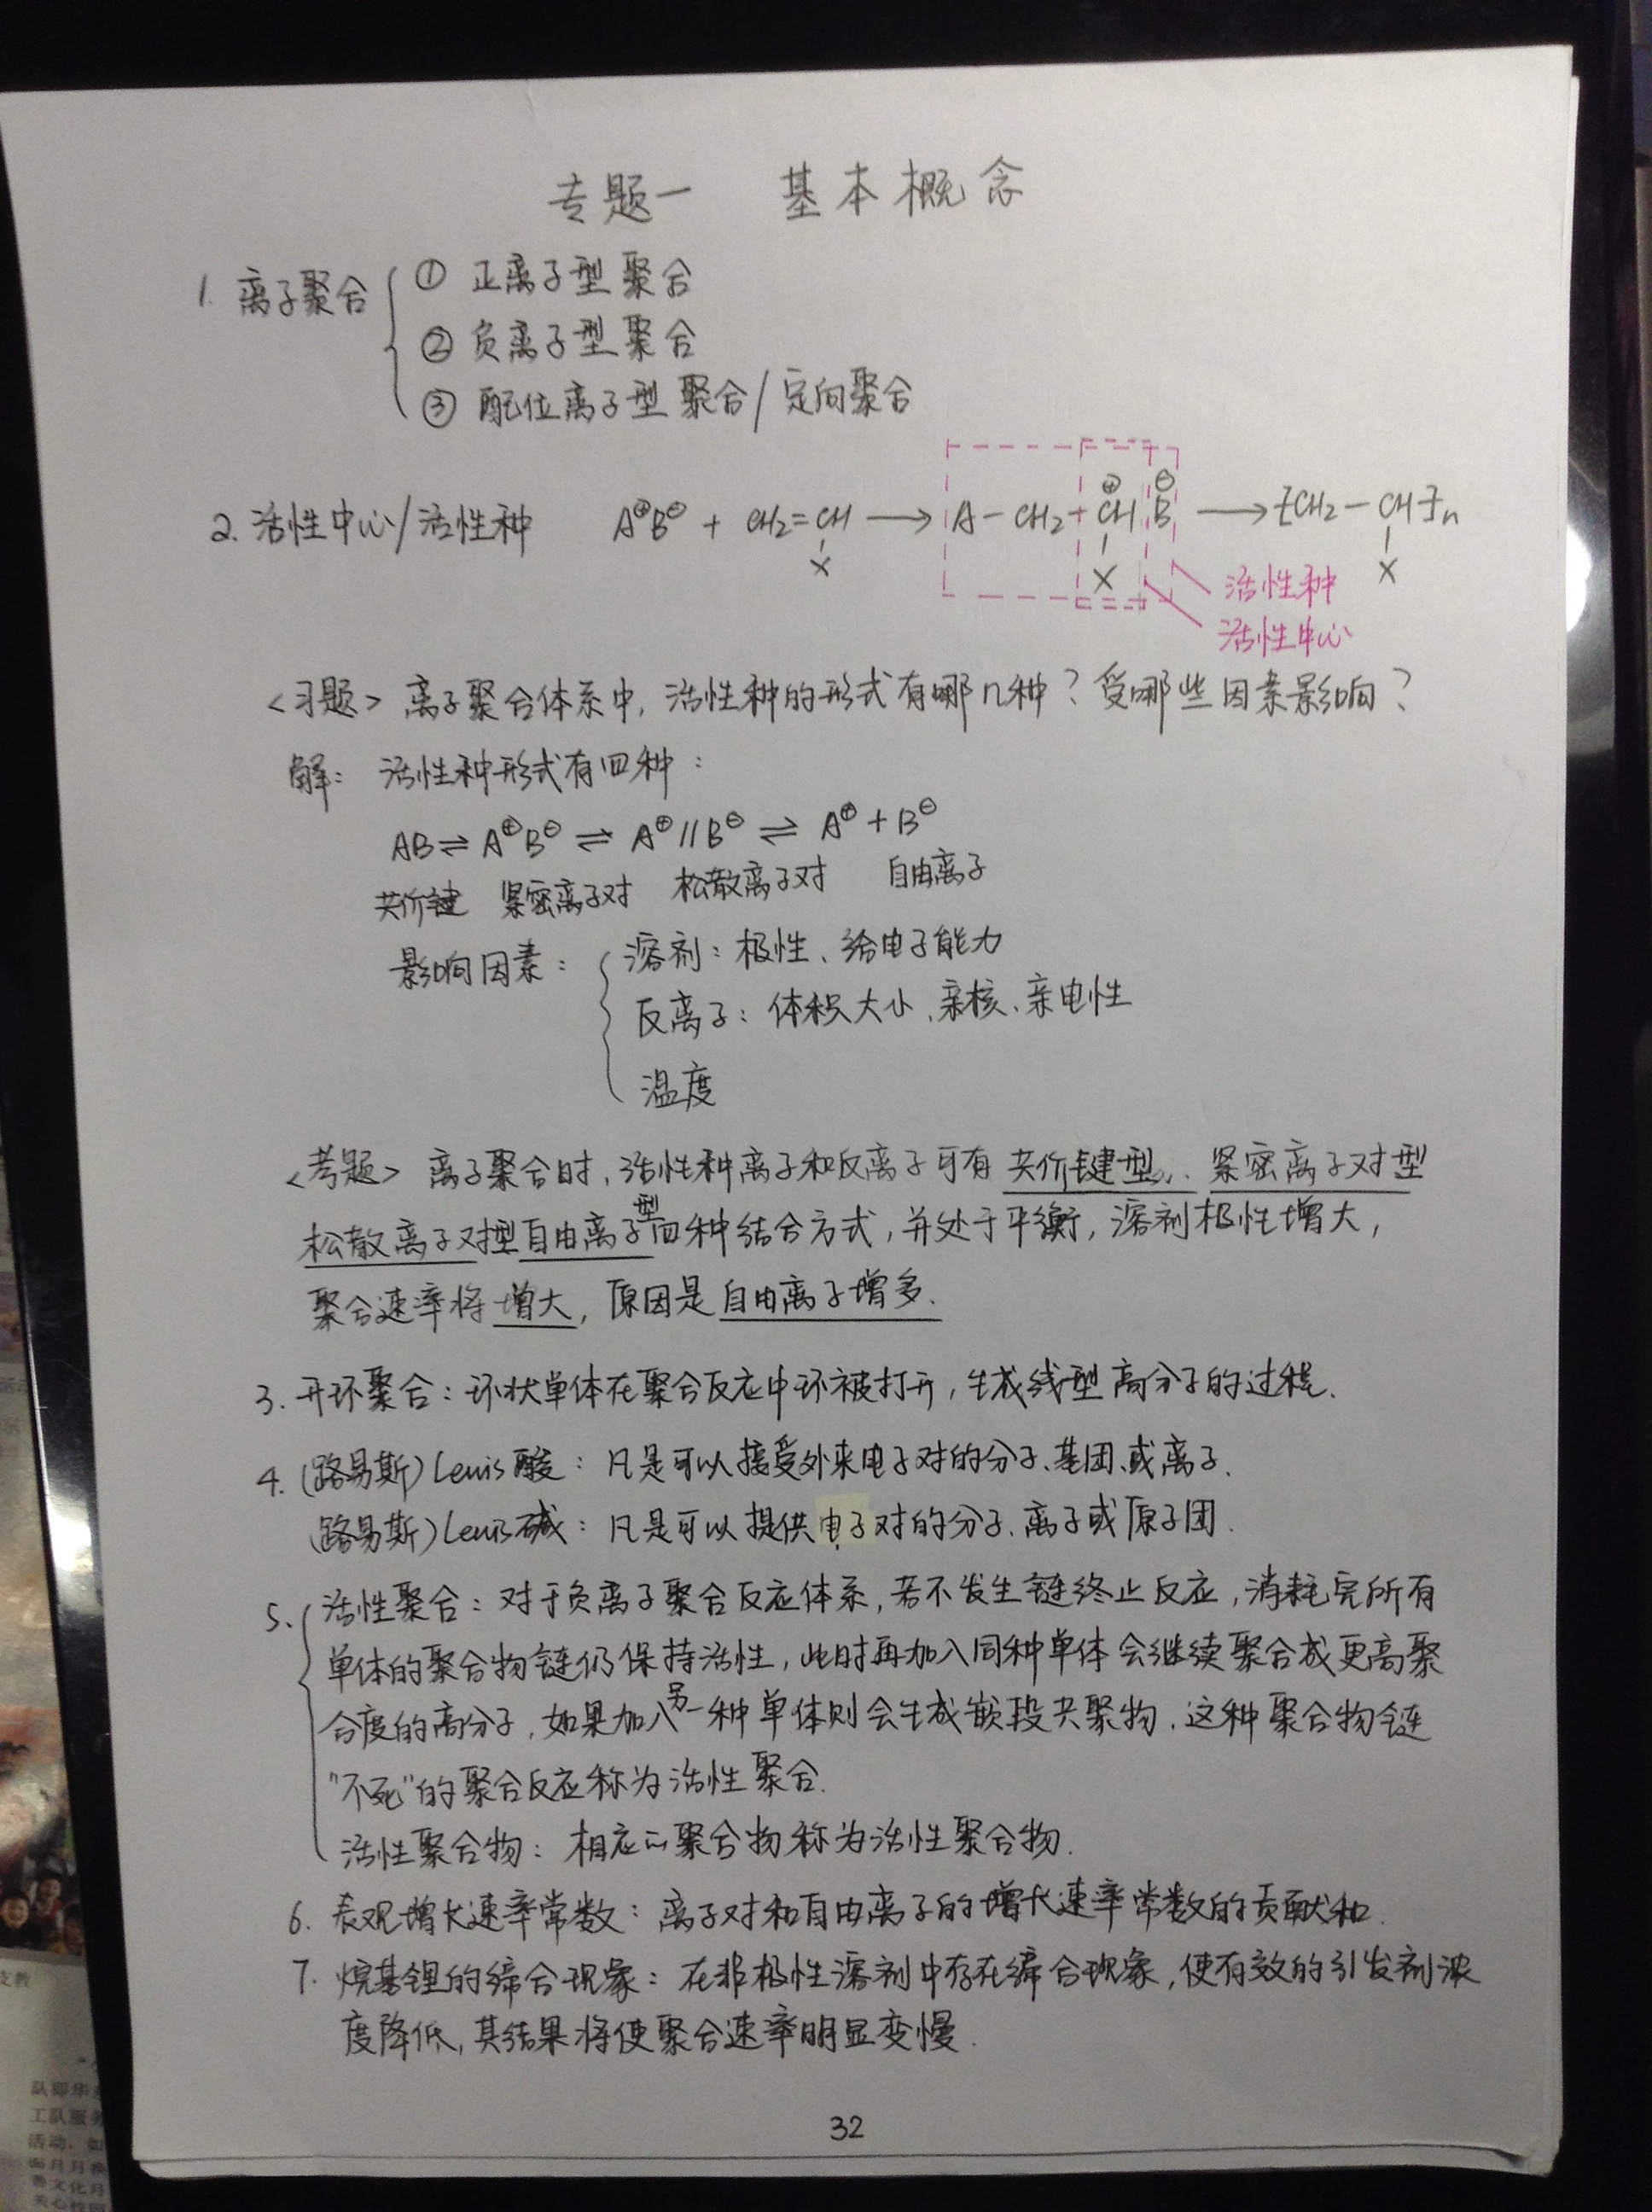 专题一 基本概念
1. 离子聚合
① 正离子型聚合
② 负离子型聚合
③ 配位离子型聚合/定向聚合
2. 活性中心/活性种 A⊕B⊖ + CH₂=CH ⟶ A-CH₂+CH⊕ B⊖ ⟶ [CH₂-CH]n
X X X
活性种
活性中心
<习题> 离子聚合体系中,活性种的形式有哪几种?受哪些因素影响?
解: 活性种形式有四种:
AB ⇌ A⊕B⊖ ⇌ A⊕//B⊖ ⇌ A⊕ + B⊖
共价键 紧密离子对 松散离子对 自由离子
影响因素:
溶剂:极性、给电子能力
反离子:体积大小、亲核、亲电性
温度
<考题> 离子聚合时,活性种离子和反离子可有共价键型、紧密离子对型
松散离子对型自由离子型四种结合方式,并处于平衡,溶剂极性增大,
聚合速率将增大,原因是自由离子增多.
3. 开环聚合:环状单体在聚合反应中环被打开,生成线型高分子的过程.
4. (路易斯)Lewis酸:凡是可以接受外来电子对的分子、基团、或离子.
(路易斯)Lewis碱:凡是可以提供电子对的分子、离子或原子团.
5. 活性聚合:对于负离子聚合反应体系,若不发生链终止反应,消耗完所有
单体的聚合物链仍保持活性,此时再加入同种单体会继续聚合成更高聚
合度的高分子,如果加入另一种单体则会生成嵌段共聚物.这种聚合物链
"不死"的聚合反应称为活性聚合.
活性聚合物:相应的聚合物称为活性聚合物.
6. 表观增长速率常数:离子对和自由离子的增长速率常数的贡献和.
7. 烷基锂的缔合现象:在非极性溶剂中存在缔合现象,使有效的引发剂浓
度降低,其结果将使聚合速率明显变慢.
32
支教
队即华
工队服务
活动.如